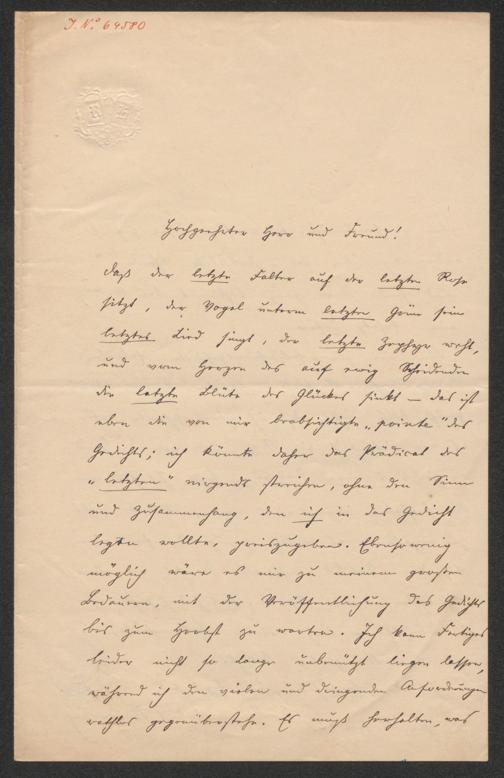 J. N. 64580
Hochgeehrter Herr und Freund!
Daß der letzte Falter auf der letzten Rose
sitzt, der Vogel unterm letzten Grün sein
letztes Lied singt, der letzte Zephyr weht,
und vom Herzen des auf ewig Scheidenden
die letzte Blüte des Glückes sinkt – das ist
eben die von mir beabsichtigte „pointe" des
Gedichts; ich könnte daher das Prädicat des
„letzten" nirgends streichen, ohne den Sinn
und Zusammenhang, den ich in das Gedicht
legen wollte, preiszugeben. Ebensowenig
möglich wäre es mir zu meinem großen
Bedauern, mit der Veröffentlichung des Gedichts
bis zum Herbst zu warten. Ich kann Fertiges
leider nicht so lange unbenützt liegen lassen,
während ich den vielen und dringenden Anforderungen
rathlos gegenüberstehe. Es muß herhalten, was